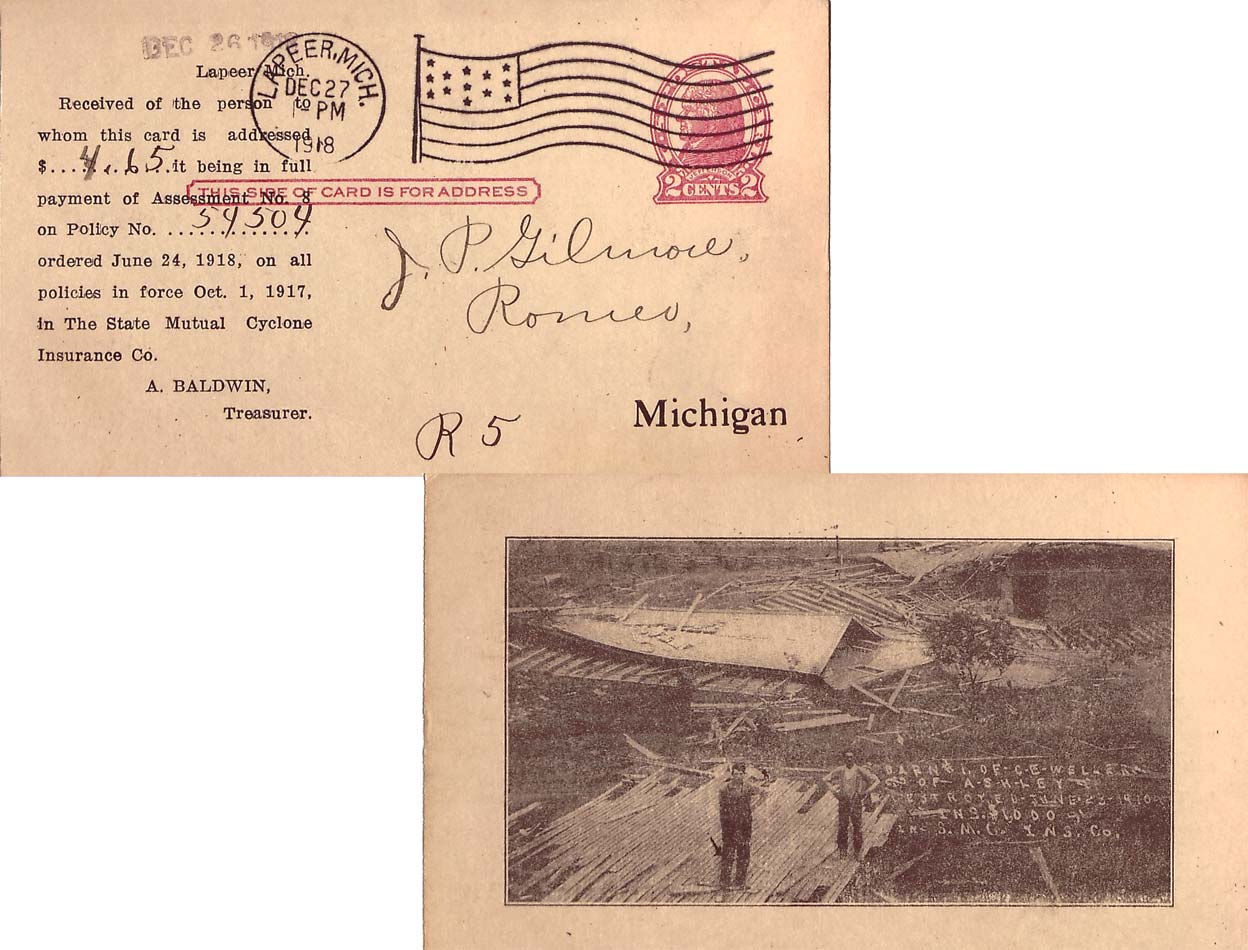 DEC 26 1918
LAPEER, MICH.
DEC 27
1 PM
1918
Lapeer Mich.
Received of the person to
whom this card is addressed
$....4.65.it being in full
payment of Assessment No. 8
on Policy No. 54504
ordered June 24, 1918, on all
policies in force Oct. 1, 1917,
in The State Mutual Cyclone
Insurance Co.
A. BALDWIN,
Treasurer.
THIS SIDE OF CARD IS FOR ADDRESS
2 CENTS 2
J. P. Gilmore,
Romeo,
Michigan
R 5
BARN #1, OF C-E-WELLER
OF ASHLEY
DESTROYED JUNE-23-1910
INS. $1000
IN S. M. C. INS. Co.